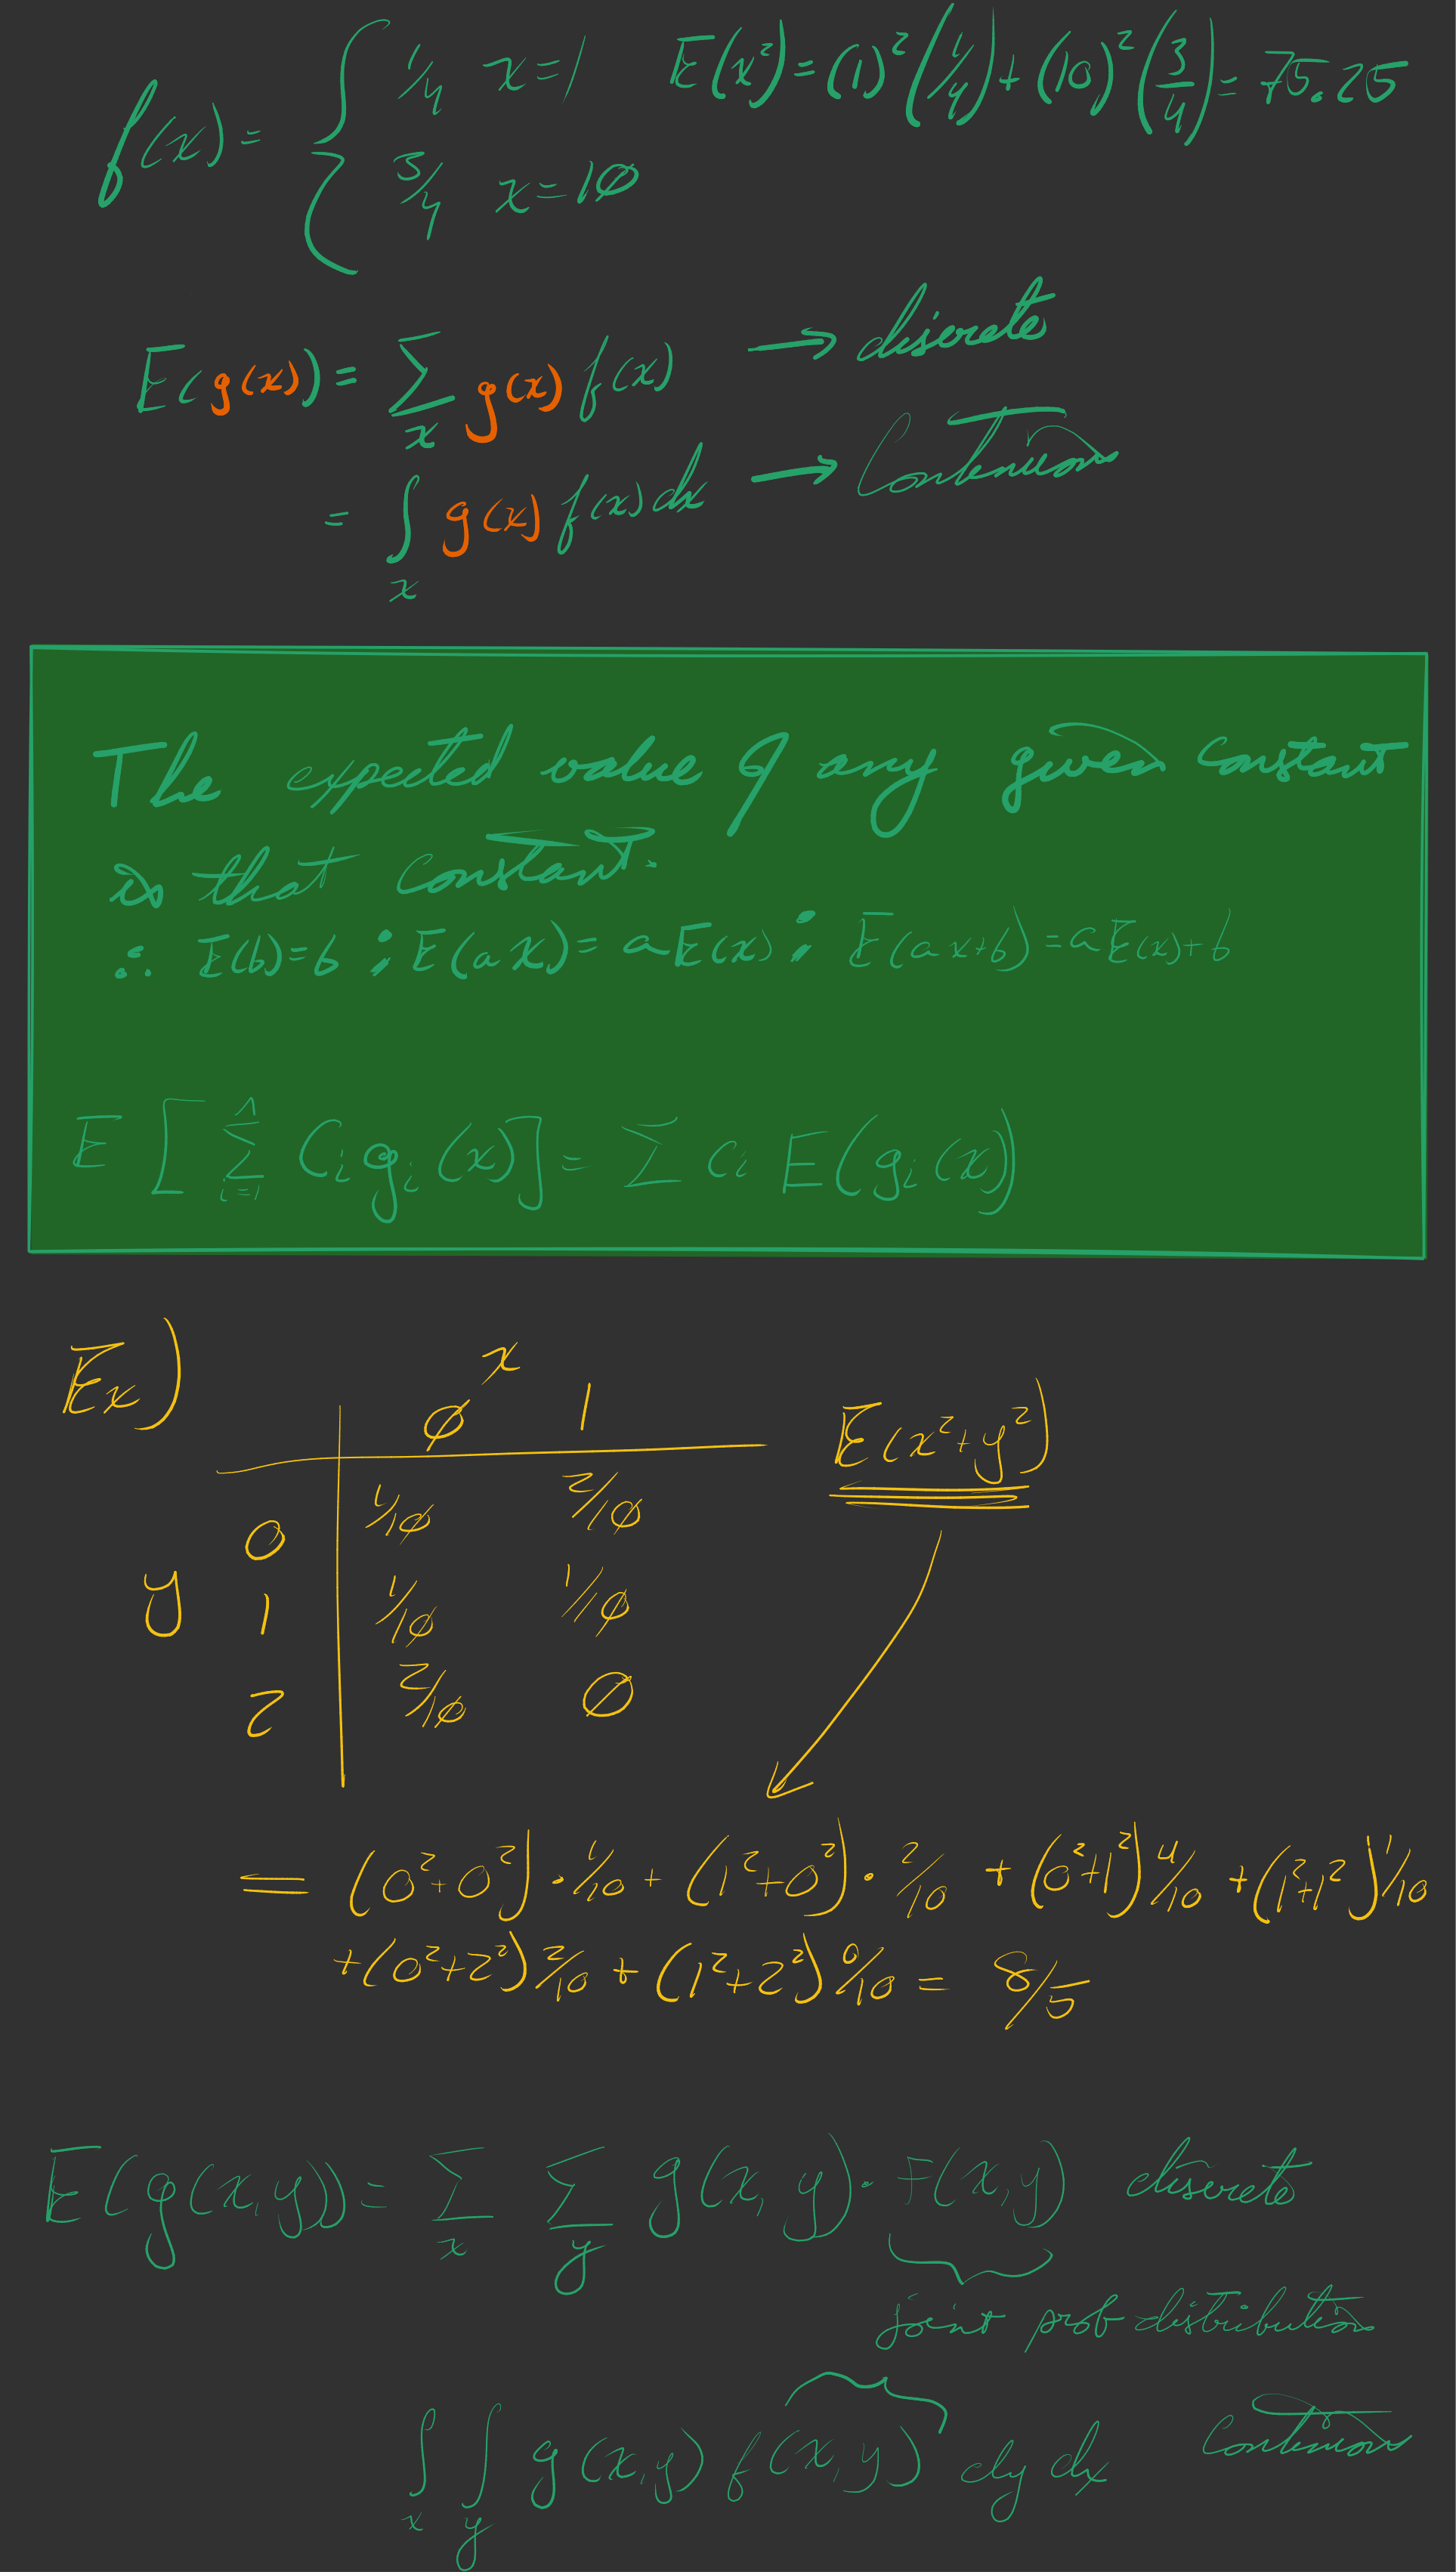 f(x) = { 1/4 x=1 E(x²) = (1)² (1/4) + (10)² (3/4) = 75.25
3/4 x=10
E(g(x)) = Σ_x g(x) f(x) → discrete
= ∫_x g(x) f(x) dx → Continuous
The expected value of any given constant
is that constant.
∴ E(b)=b ; E(ax) = aE(x) ; E(ax+b) = aE(x)+b
E[Σ_{i=1}^n C_i g_i(x)] = Σ c_i E(g_i(x))
Ex) x
0 1 E(x²+y²)
0 1/10 2/10
y 1 1/10 1/10
2 2/10 0
= (0²+0²)·1/10 + (1²+0²)·2/10 + (0²+1²)4/10 + (1²+1²)1/10
+(0²+2²)2/10 + (1²+2²)0/10 = 8/5
E(g(x,y)) = Σ_x Σ_y g(x,y)·f(x,y) discrete
joint prob distribution
∫_x ∫_y g(x,y) f(x,y) dy dx Continuous